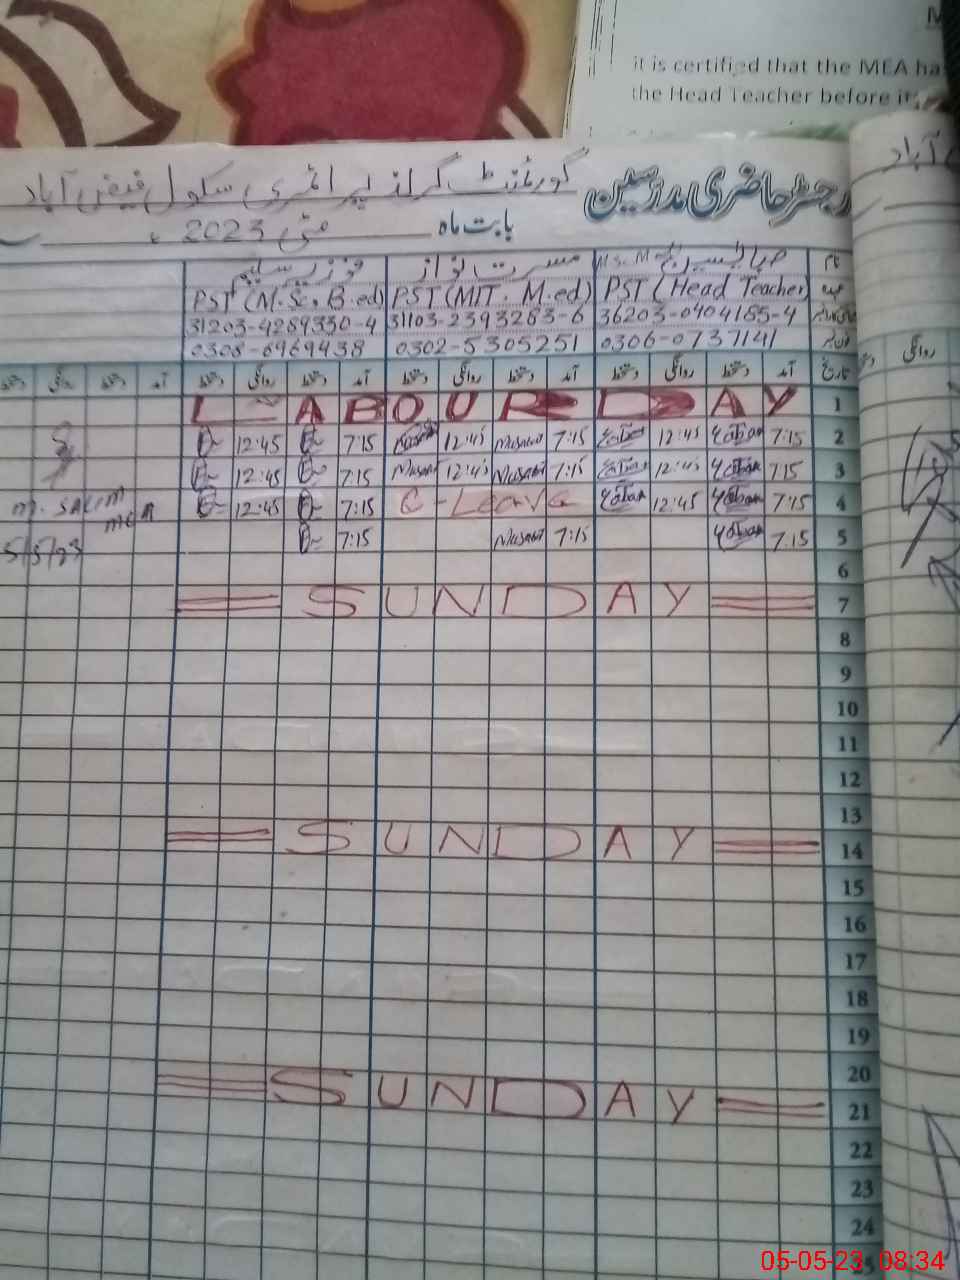 it is certified that the MEA ha
the Head Teacher before it
رجسٹر حاضری مدرسین گورنمنٹ گرلز پرائمری سکول فیض آباد
بابت ماہ مئی 2023ء
نام صبا یاسمین مسرت نواز فوزیہ سلیم
PST (Head Teacher) PST (MIT. M.ed) PST (M.Sc. B.ed)
36203-0904185-4 31103-2393283-6 31203-4289330-4
0306-0737141 0302-5305251 0308-6969438
تاریخ آمد دستخط روانگی دستخط آمد دستخط روانگی دستخط آمد دستخط روانگی دستخط آمد دستخط روانگی دستخط
1 LABOUR DAY
2 7:15 12:45 7:15 12:45 7:15 12:45
3 7:15 12:45 7:15 12:45 7:15 12:45
4 7:15 12:45 C-Leave 7:15 12:45
5 7:15 7:15 7:15
M. SALIM
MEA
5/5/23
6
7 SUNDAY
8
9
10
11
12
13
14 SUNDAY
15
16
17
18
19
20
21 SUNDAY
22
23
24
25
آباد
روانگی
05-05-23 08:34